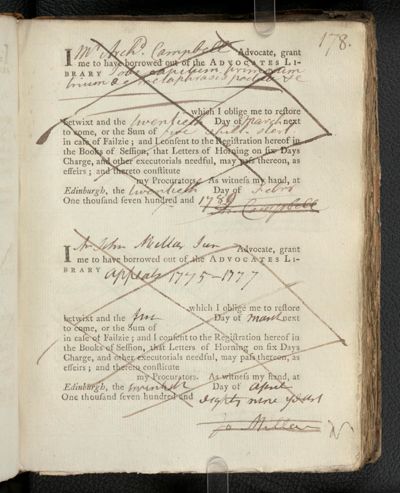 178.
I Mr Archd. Campbell Advocate, grant
me to have borrowed out of the ADVOCATES LI-
BRARY Jobi capitum
metaphrasis
, which I oblige me to reſtore
betwixt and the twentieth Day of March next
to come, or the Sum of five ſhill. ſterl.
in caſe of Failzie; and I conſent to the Regiſtration hereof in
the Books of Seſſion, that Letters of Horning on ſix Days
Charge, and other executorials needful, may paſs thereon, as
effeirs; and thereto conſtitute
my Procurators. As witneſs my hand, at
Edinburgh, the twentieth Day of Febry
One thouſand ſeven hundred and 1789
Ar Campbell
I Mr John Millar Junr Advocate, grant
me to have borrowed out of the ADVOCATES LI-
BRARY Appeals 1775-1777
, which I oblige me to reſtore
betwixt and the first Day of March next
to come, or the Sum of
in caſe of Failzie; and I conſent to the Regiſtration hereof in
the Books of Seſſion, that Letters of Horning on ſix Days
Charge, and other executorials needful, may paſs thereon, as
effeirs; and thereto conſtitute
my Procurators. As witneſs my hand, at
Edinburgh, the twentieth Day of April
One thouſand ſeven hundred and eighty nine years
Jo Millar